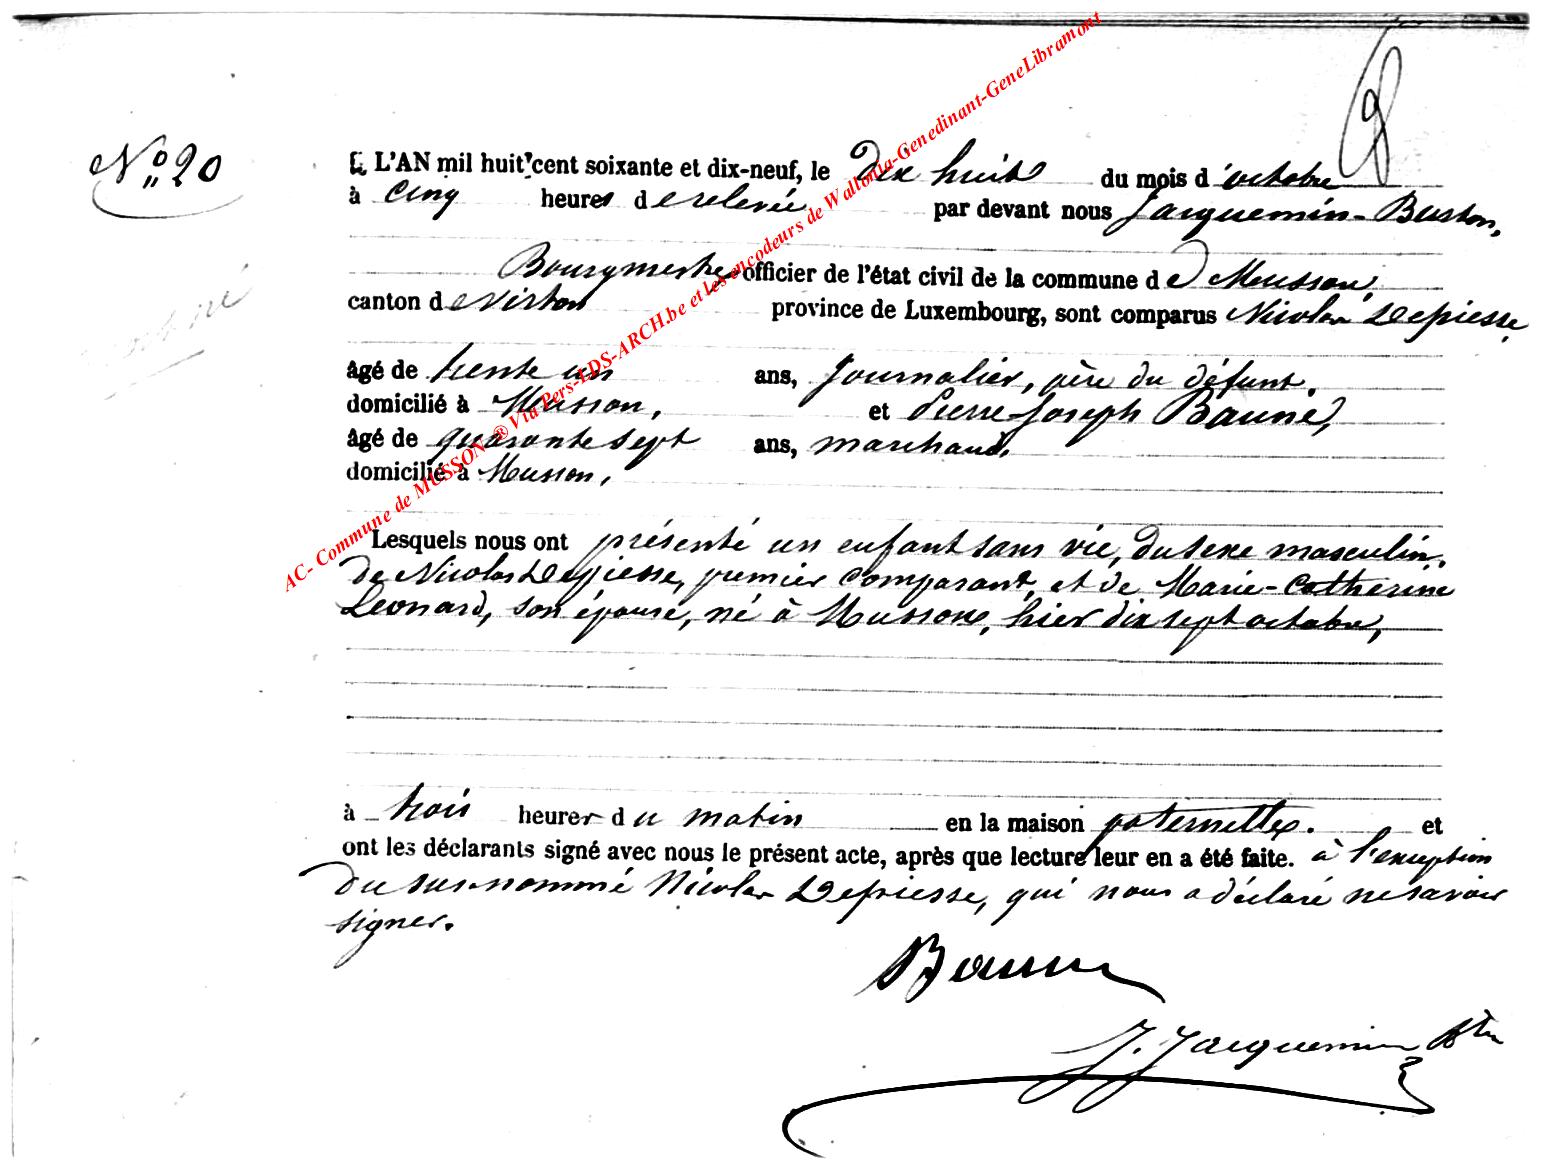 8
N° 20
L'AN mil huit cent soixante et dix-neuf, le dix huit du mois d'octobre
à cinq heures de relevée par devant nous Jacquemin-Buston,
Bourgmestre officier de l'état civil de la commune de Musson,
canton de Virton province de Luxembourg, sont comparus Nicolas Defiesse,
âgé de trente un ans, journalier, père du défunt,
domicilié à Musson, et Pierre-Joseph Bauné,
âgé de quarante sept ans, marchand,
domicilié à Musson,
Lesquels nous ont présenté un enfant sans vie, du sexe masculin,
de Nicolas Defiesse, premier comparant, et de Marie-Catherine
Leonard, son épouse, né à Musson, hier dix sept octobre,
à trois heures du matin en la maison paternelle. et
ont les déclarants signé avec nous le présent acte, après que lecture leur en a été faite. à l'exception
du susnommé Nicolas Defiesse, qui nous a déclaré ne savoir
signer.
J. Jacquemin
AC- Commune de MUSSON ® Via Pers-LDS-ARCH.be et les encodeurs de Wallonia-Genedinant-GeneLibramont